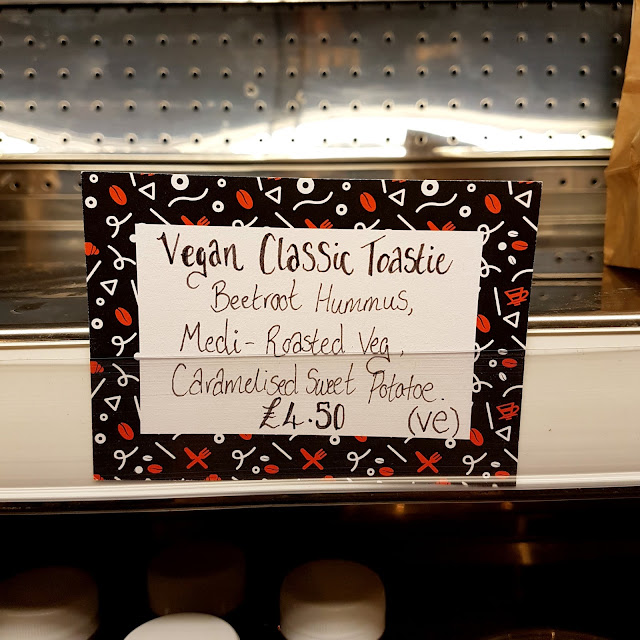 Vegan Classic Toastie
Beetroot Hummus,
Medi-Roasted Veg,
Caramelised Sweet Potatoe.
£4.50 (ve)